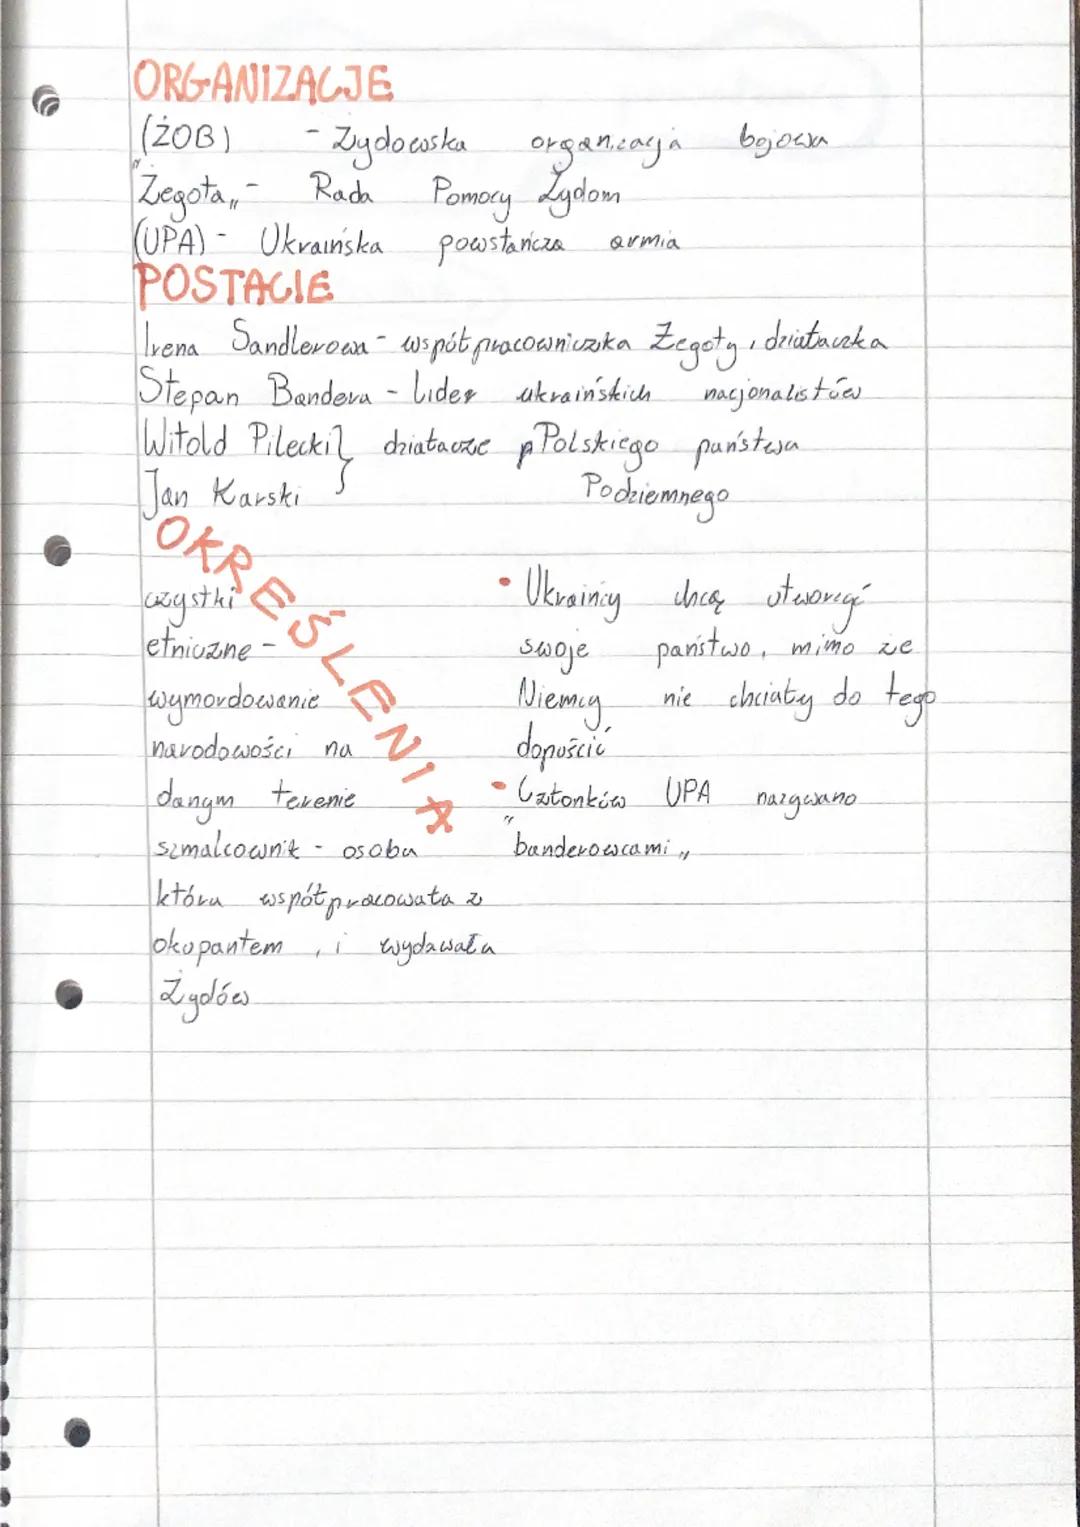 ORGANIZACJE
(ŻOB) - Żydowska organizacja bojowa
"Żegota„ - Rada Pomocy Żydom
(UPA) - Ukraińska powstańcza armia
POSTACIE
Irena Sandlerowa - współpracowniczka Żegoty, działaczka
Stepan Bandera - Lider ukraińskich nacjonalistów
Witold Pilecki } działacze Polskiego państwa
Jan Karski Podziemnego
OKREŚLENIA
czystki
etniczne -
wymordowanie
narodowości na
danym terenie
szmalcownik - osoba
która współpracowała z
okupantem, i wydawała
Żydów
• Ukraińcy chcą utworzyć
swoje państwo, mimo że
Niemcy nie chciały do tego
dopuścić
• Członków UPA nazywano
"banderowcami„